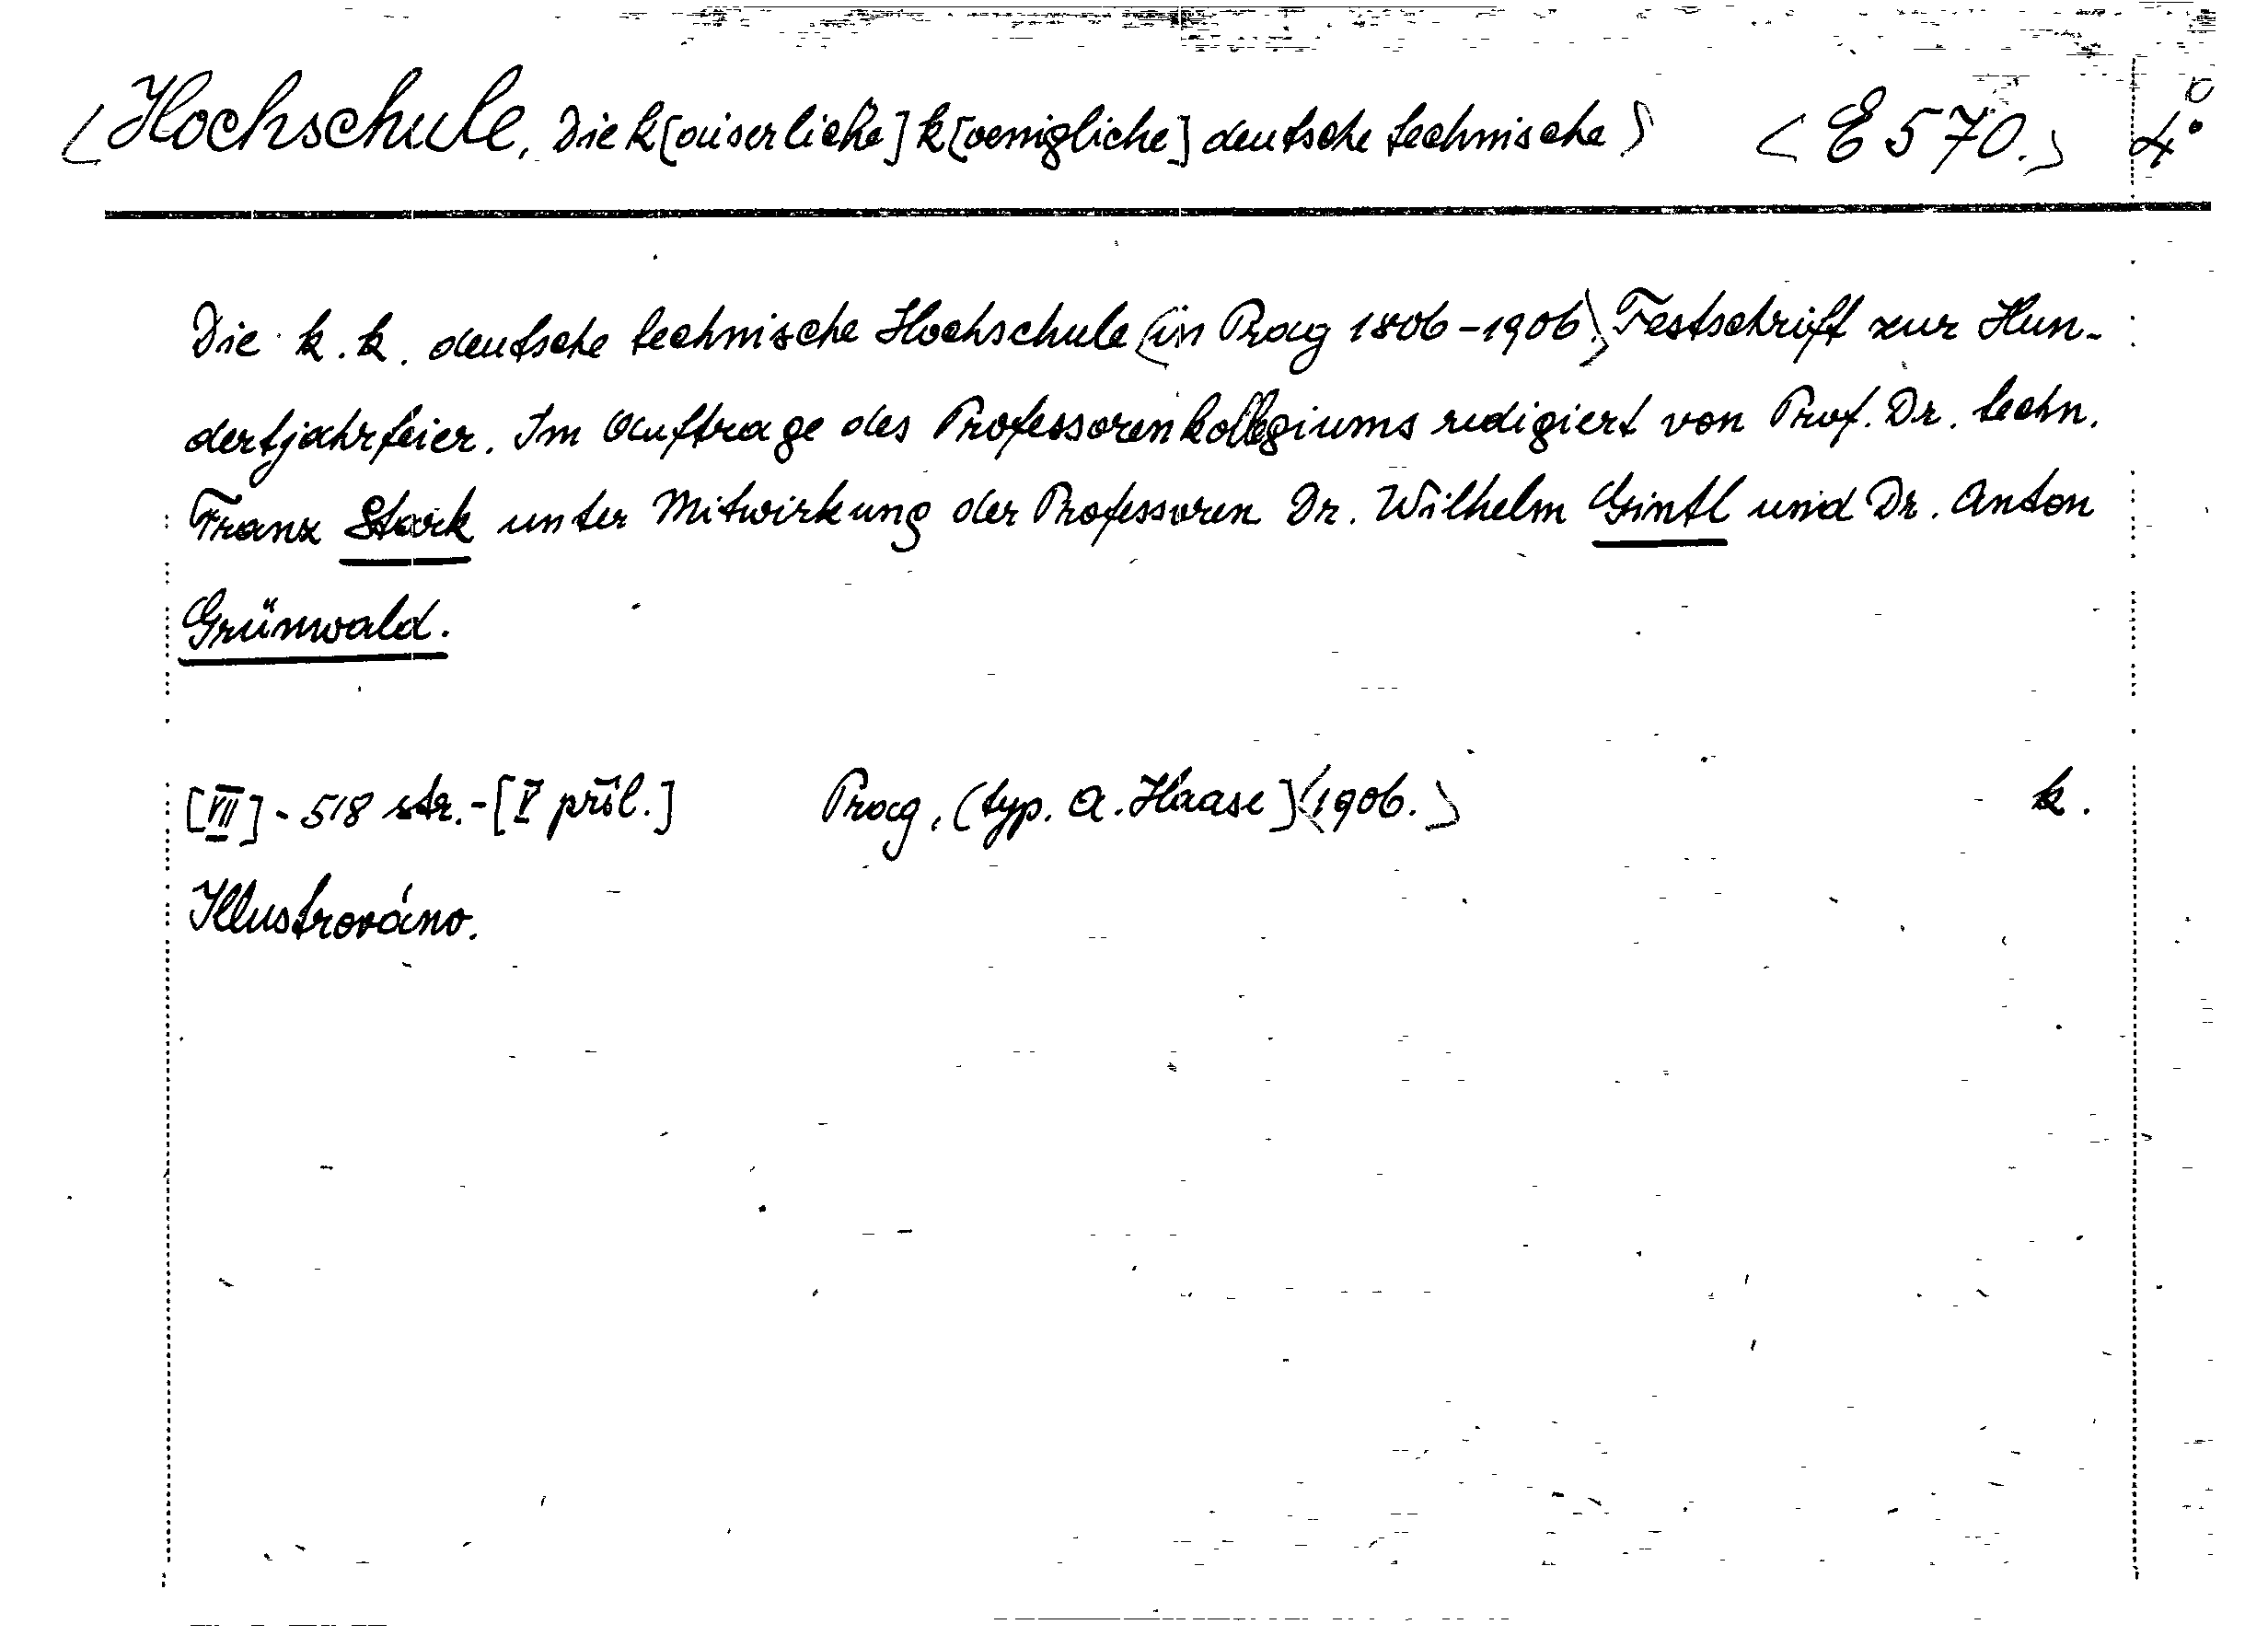 <Hochschule, Die k[aiserliche] k[oenigliche] deutsche technische> <E 570.> 4°
Die k. k. deutsche technische Hochschule <in Prag 1806-1906.> Festschrift zur Hun-
dertjahrfeier. Im Auftrage des Professorenkollegiums redigiert von Prof. Dr. techn.
Franz Stark unter Mitwirkung der Professoren Dr. Wilhelm Gintl und Dr. Anton
Grünwald.
[VII] - 518 str. - [V příl.] Prag, (typ. A. Haase) <1906.> k.
Illustrováno.